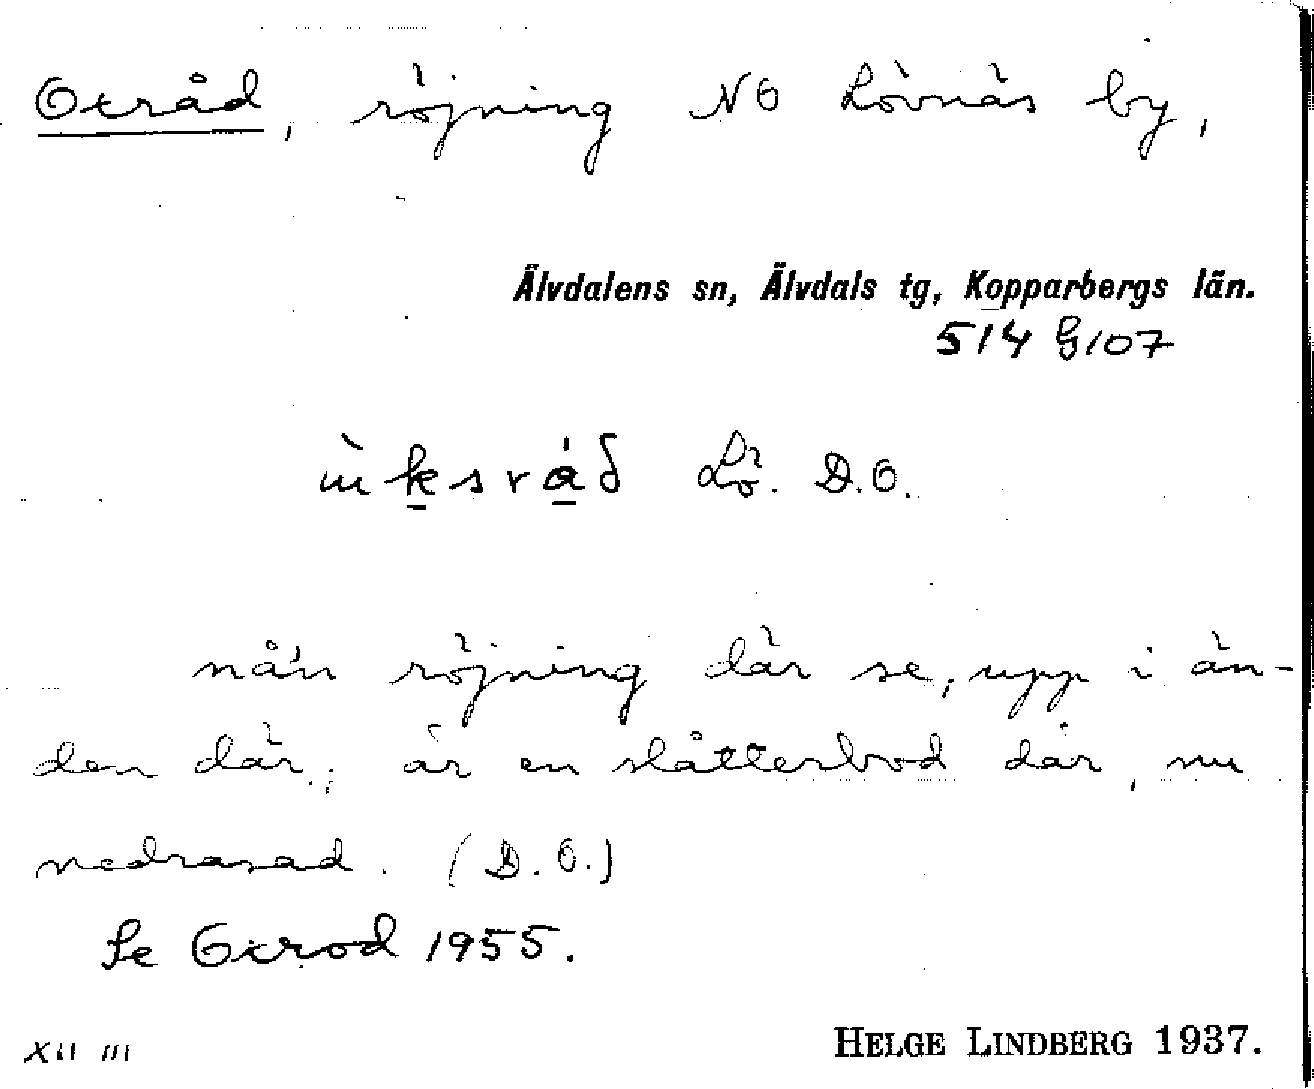 Oxråd, röjning NO Lövnäs by,
Älvdalens sn, Älvdals tg, Kopparbergs län.
514 G107
ùksråð Lö. D.O.
nån röjning där se, upp i än-
den där; är en slåtterbod där, nu
nedrasad. (D.O.)
Se Oxrod 1955.
XII III
HELGE LINDBERG 1937.